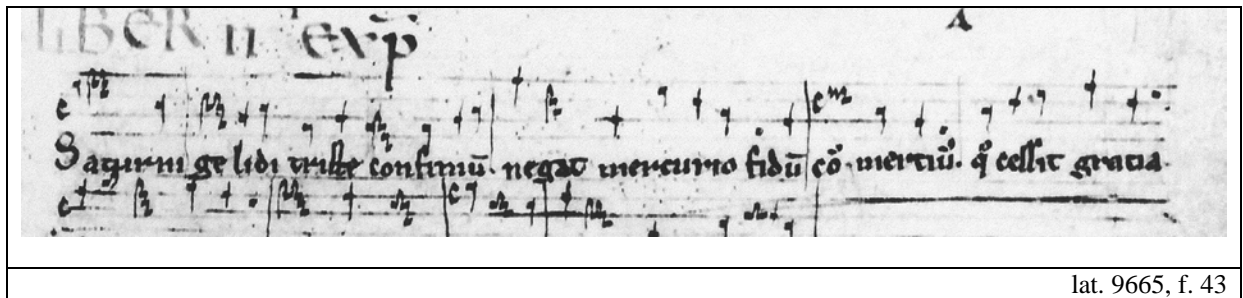 LIBER II exp̄
A
Saturni gelidi triste confiniū. negat mercurio fidū cō.mertiū. q̄ cessit gratia.
lat. 9665, f. 43